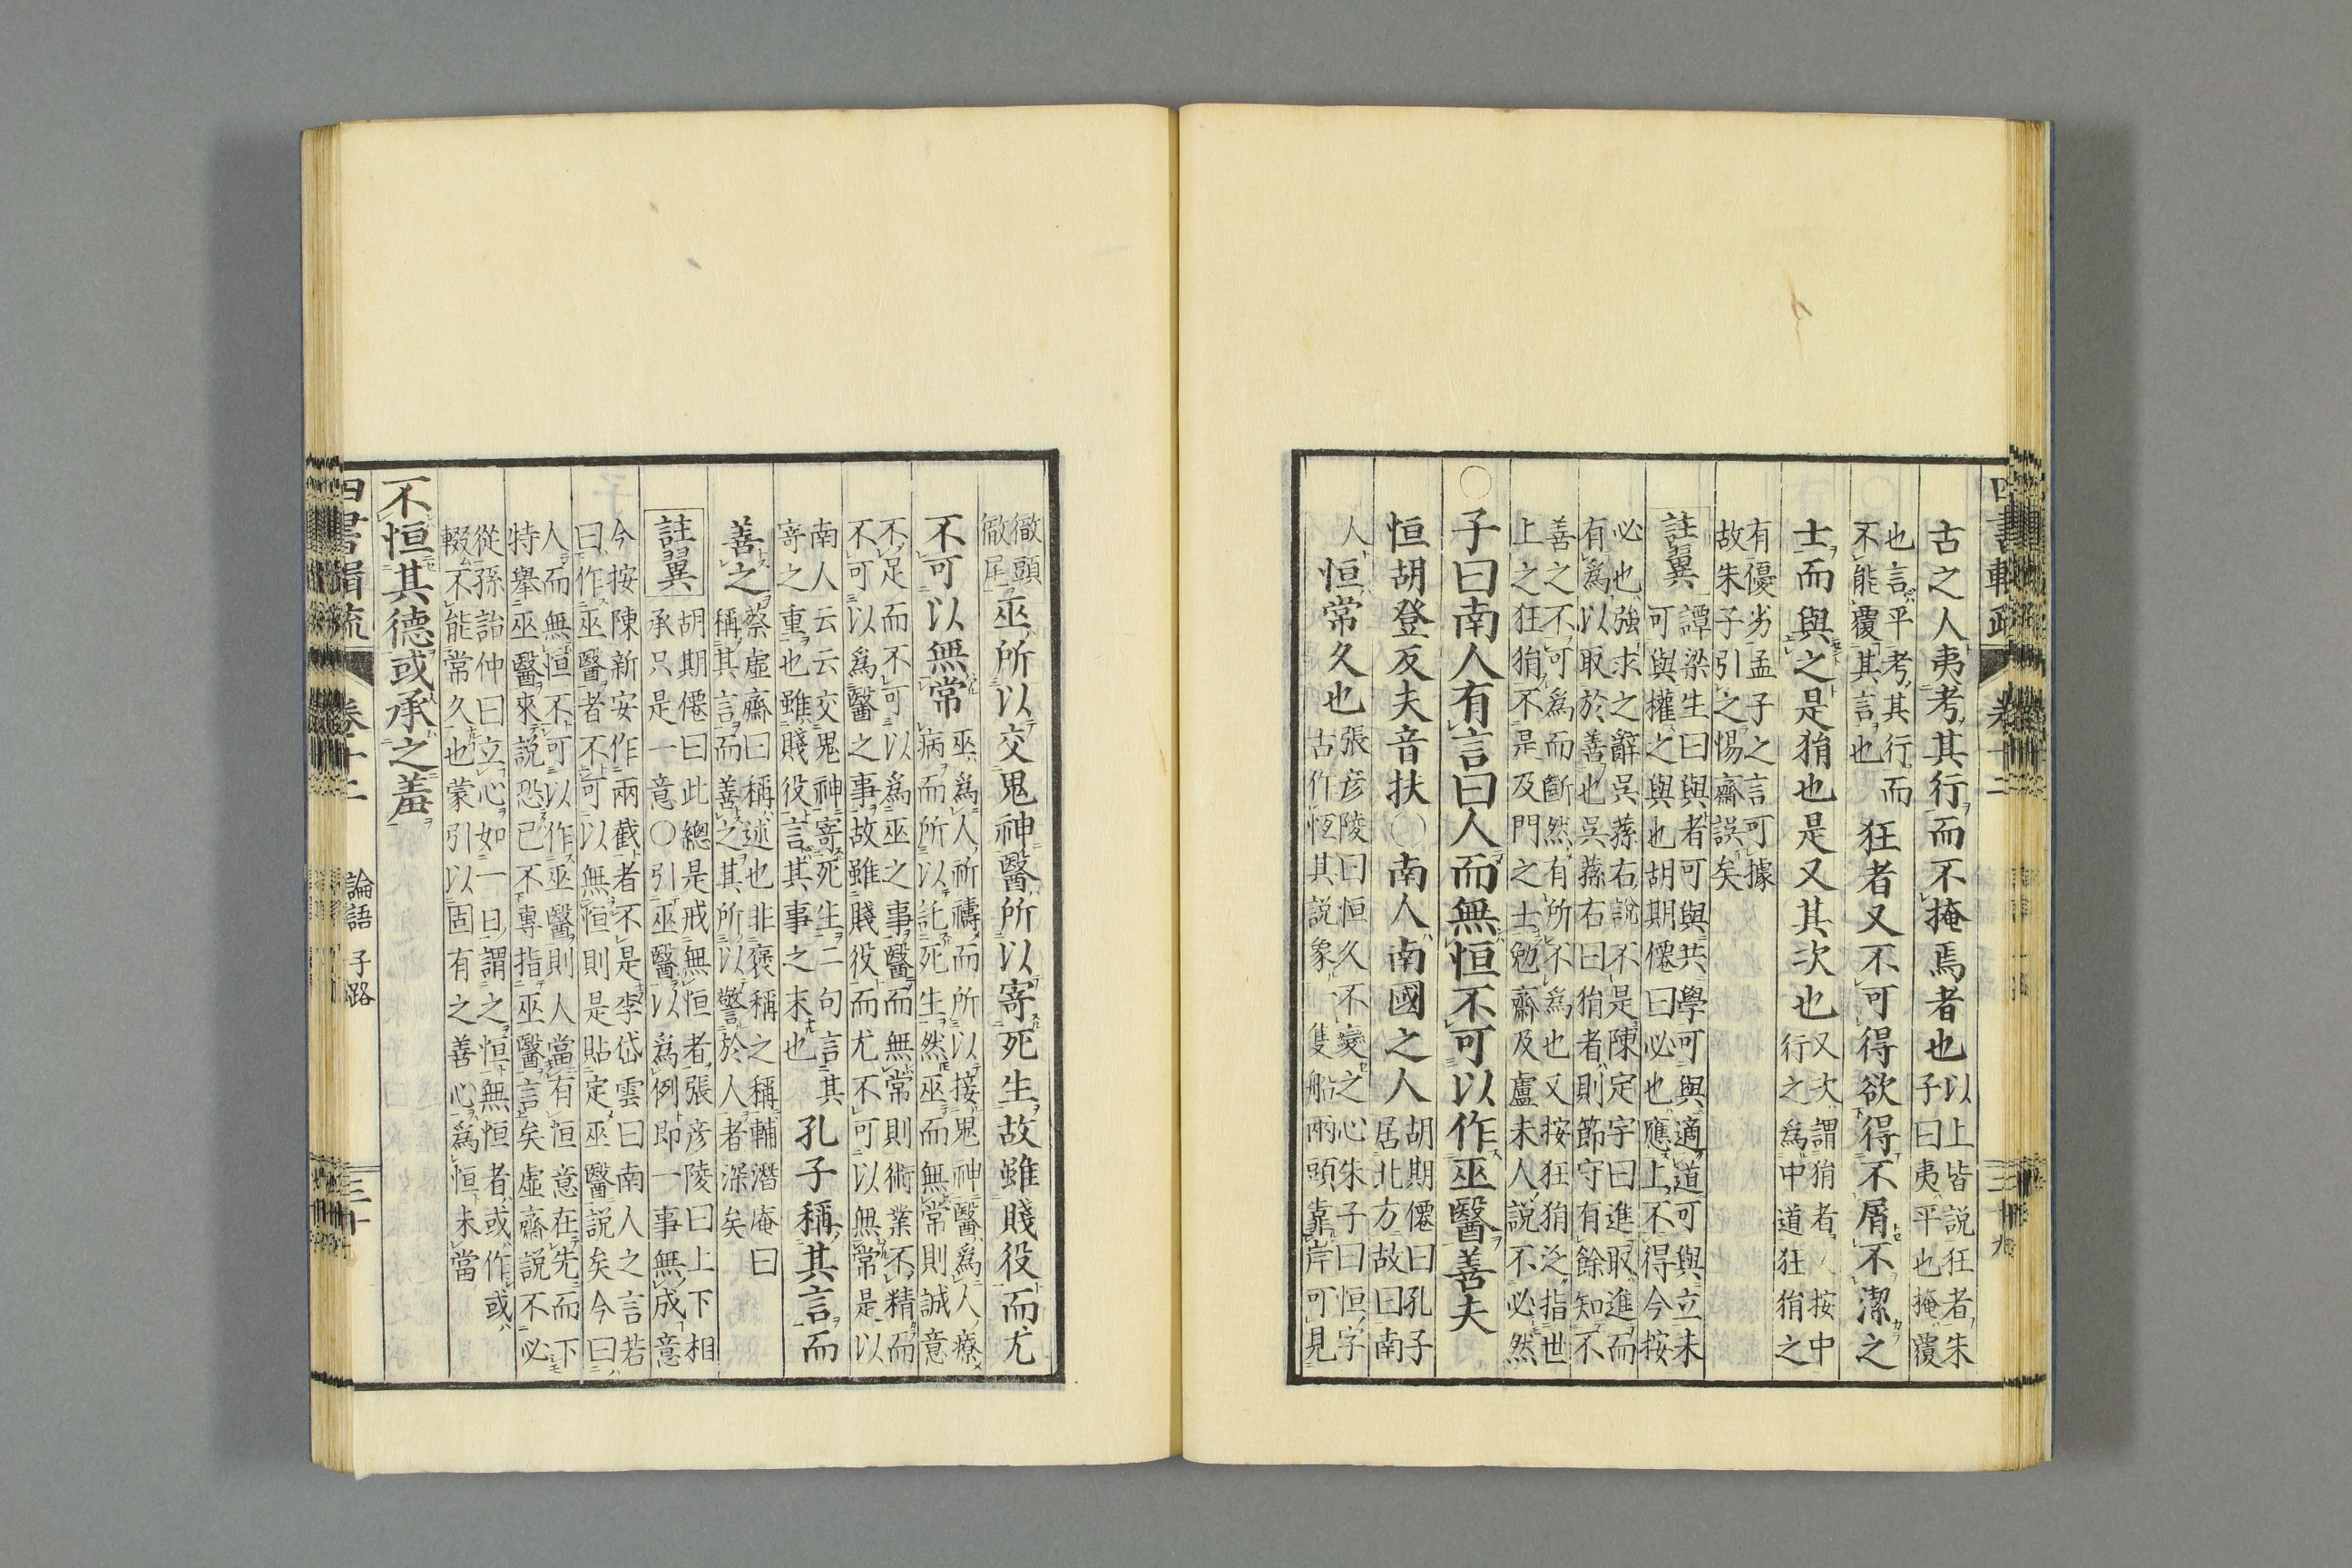 古之人夷考其行而不掩焉者也以上皆説狂者朱
子曰夷平也掩覆
也言平考其行而
不能覆其言也狂者又不可得欲得不屑不潔之
士而與之是狷也是又其次也又次謂狷者按中
行之為中道狂狷之
有優劣孟子之言可據
故朱子引之惕齋誤矣
註翼
譚梁生曰與與者可與共學可與適道可與立未
可與權之與與也胡期僊曰必也應上不得今按
必也強求之辭吳蓀右説不是陳定宇曰進取進而
有為以取於善也吳蓀右曰狷者則節守有餘知不
善之不可為而斷然有所不為也又按狂狷泛指世
上之狂狷不是及門之士勉齋及盧未人説不必然
○子曰南人有言曰人而無恒不可以作巫醫善夫
恒胡登反夫音扶○南人南國之人胡期僊曰孔子
居北方故曰南
人
恒常久也張彦陵曰恒久不變之心朱子曰恒字
古作恆其説象隻船兩頭靠岸可見
徹頭
徹尾巫所以交鬼神醫所以寄死生故雖賤役而尤
不可以無常巫為人祈禱而所以接鬼神醫為人療
病而所以託死生然巫而無常則誠意
不足而不可以為巫之事醫而無常則術業不精而
不可以為醫之事故雖賤役而尤不可以無常是以
南人云云交鬼神寄死生二句言其
寄之重也雖賤役言其事之末也孔子稱其言而
善之蔡虛齋曰稱述也非褒稱之稱輔潛庵曰
稱其言而善之其所以警於人者深矣
註翼
胡期僊曰此總是戒無恒者張彦陵曰上下相
承只是一意○引巫醫以為例即一事無成意
今按陳新安作兩截者不是李岱雲曰南人之言若
曰作巫醫者不可以無恒則是貼定巫醫説矣今曰
人而無恒不可以作巫醫則人當有恒意在先而下
特舉巫醫來説恐已不專指巫醫言矣虛齋説不必
從孫詒仲曰立心如一日謂之恒無恒者或作或
輟不能常久也蒙引以固有之善心為恒未當
不恒其德或承之羞
四書輯疏
卷十二
論語 子路
三十